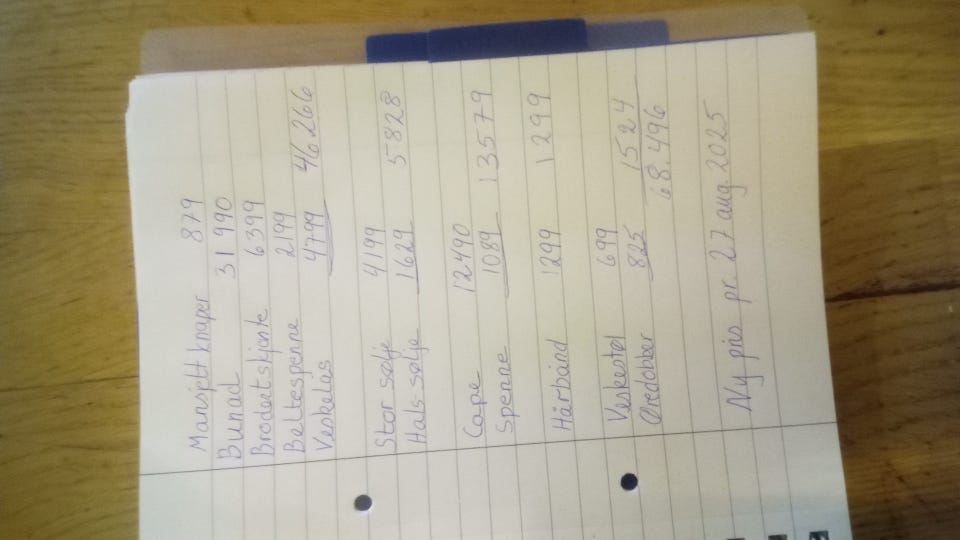 Mansjettknaper 879
Bunad 31 990
Brodertskjorte 6399
Beltespenne 2199
Veskelås 4799 46 266
Stor sølje 4199
Hals sølje 1629 5828
Cape 12490
Spenne 1089 13579
Hårbånd 1299 1299
Veskestøl 699
Øredobber 825 1524
68.496
Ny pris pr. 27 aug. 2025